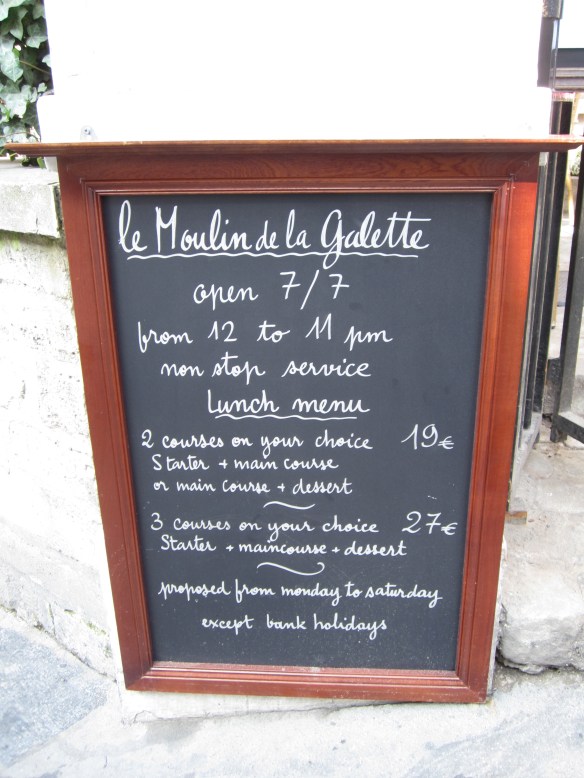 le Moulin de la Galette
open 7/7
from 12 to 11 pm
non stop service
Lunch menu
2 courses on your choice 19€
Starter + main course
or main course + dessert
3 courses on your choice 27€
Starter + maincourse + dessert
proposed from monday to saturday
except bank holidays